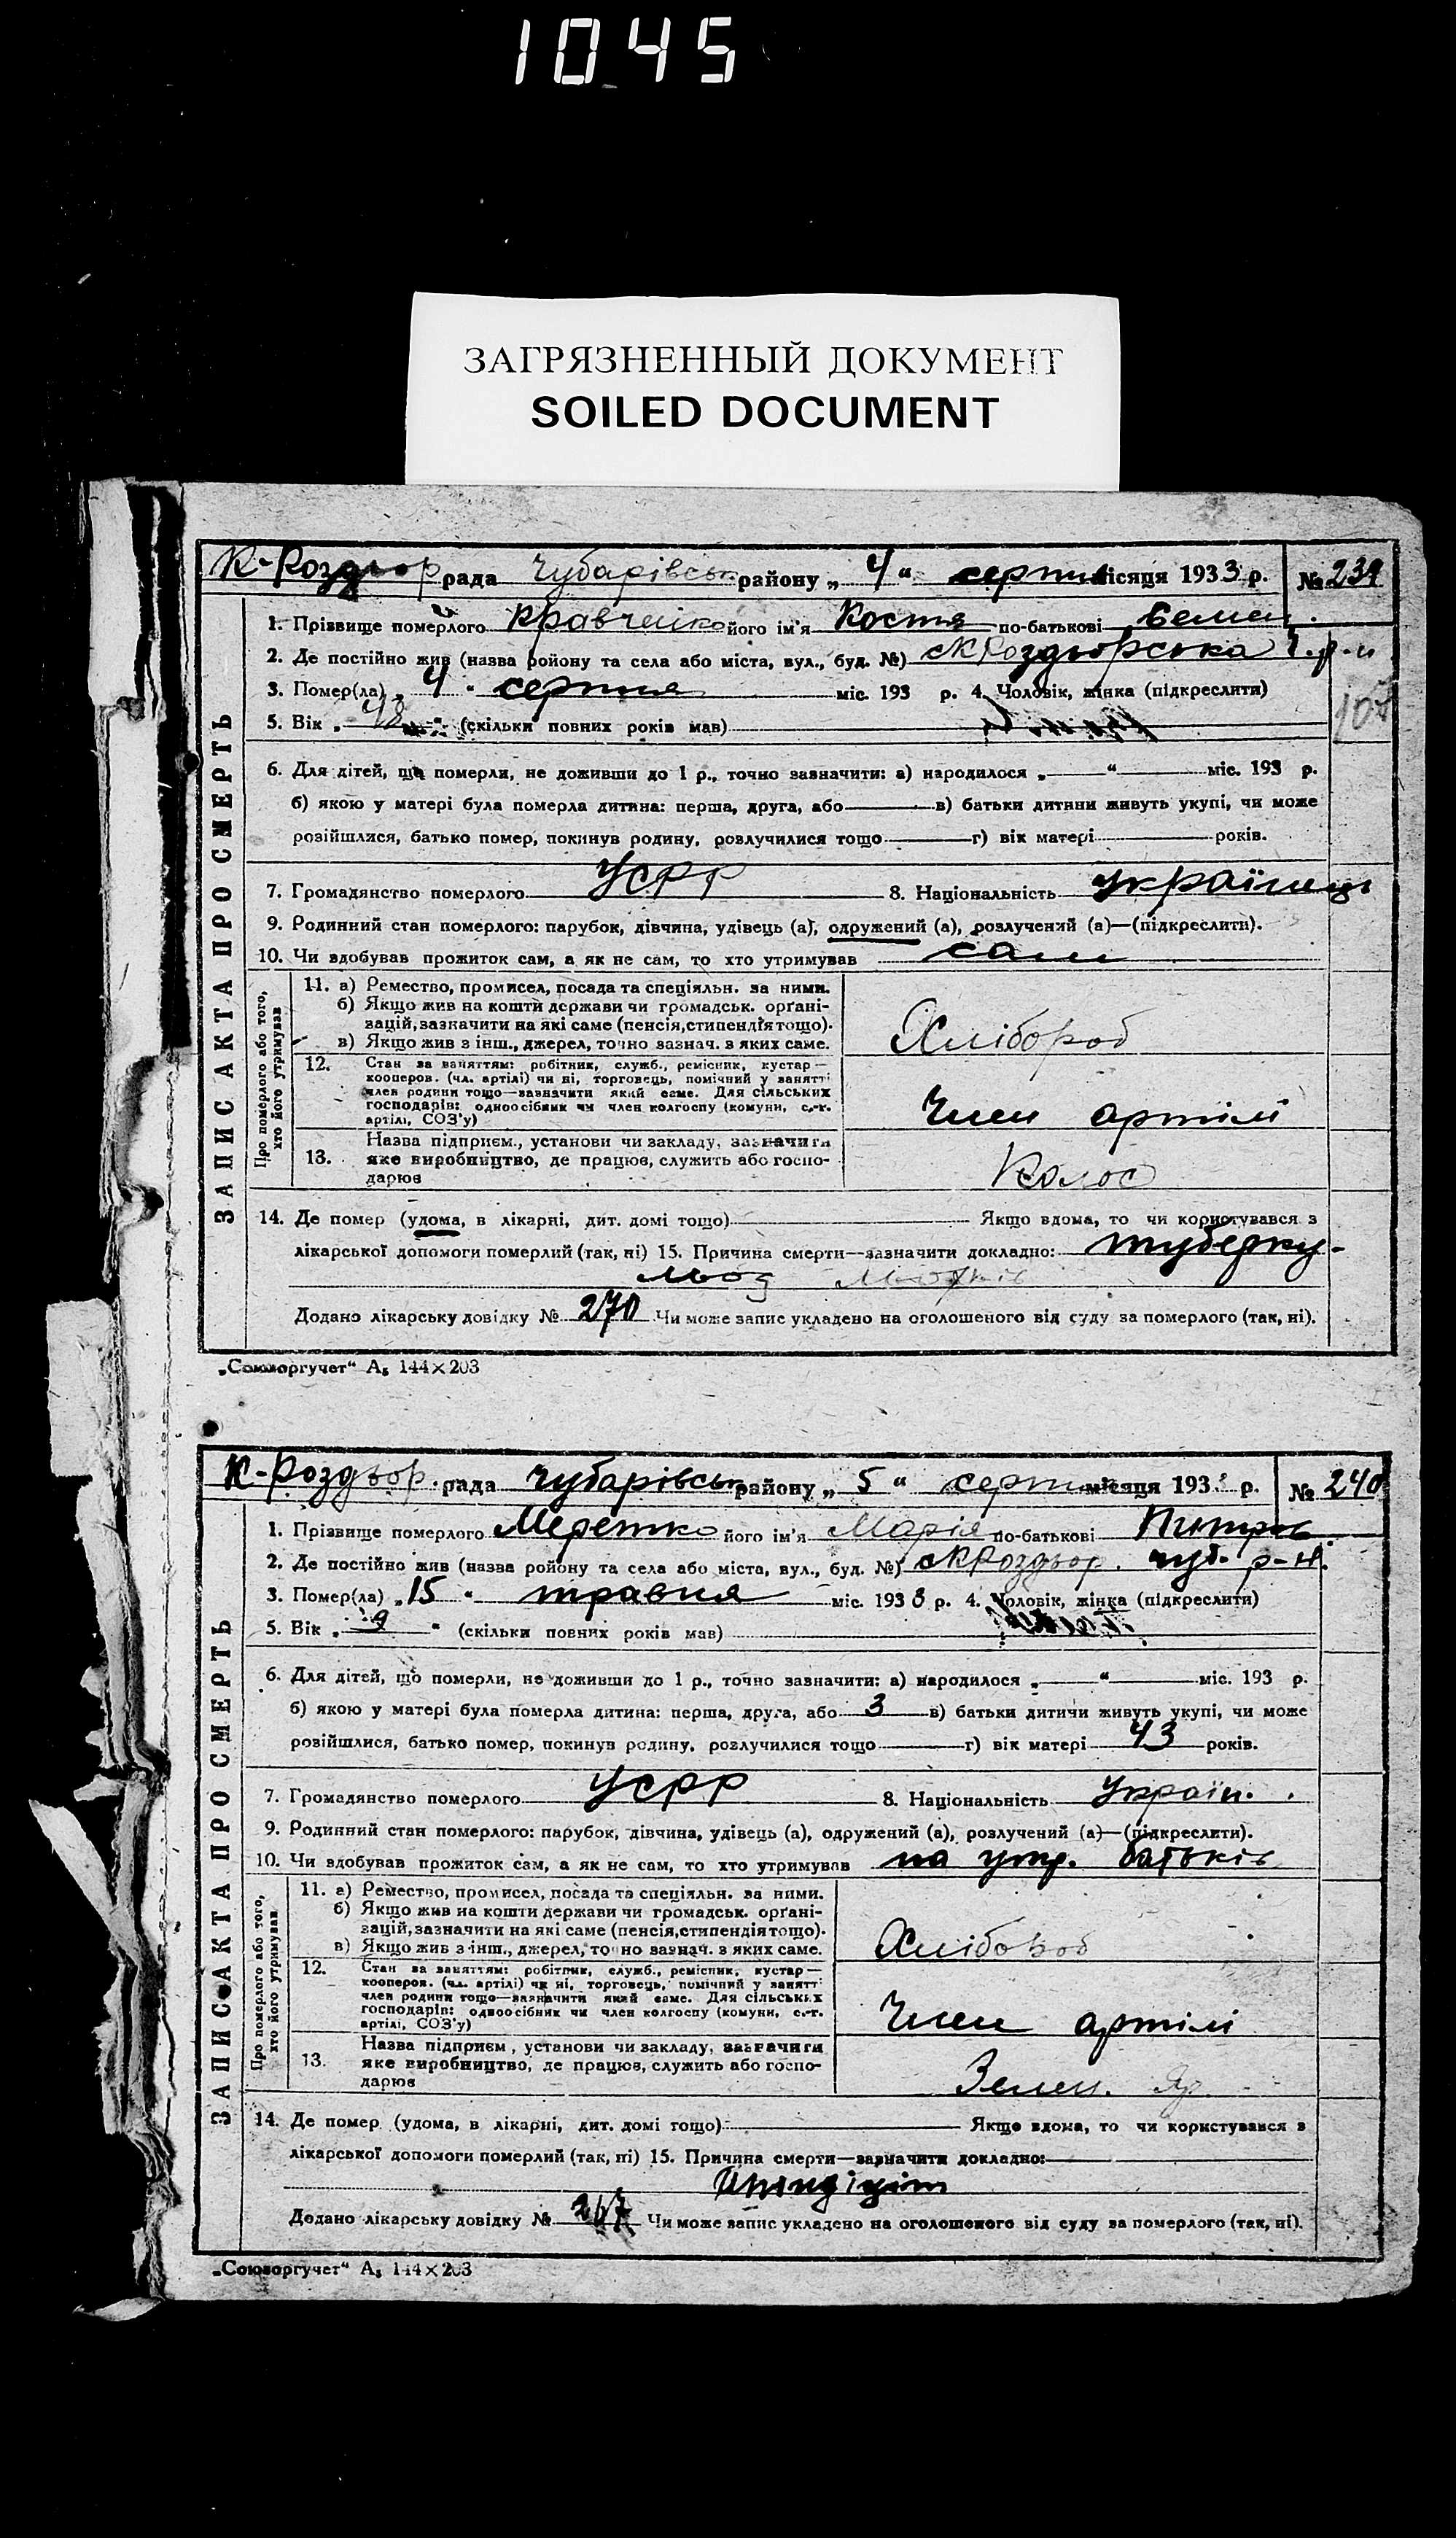 1045
ЗАГРЯЗНЕННЫЙ ДОКУМЕНТ
SOILED DOCUMENT
К-Роздьор рада Чубарівськ району „ 4 “ серпня місяця 1933 р. № 239
1. Прізвище померлого Кравченко його ім'я Костя по-батькові Семен.
2. Де постійно жив (назва району та села або міста, вул., буд. №) сК Роздьорська Ч. р-н
3. Помер(ла) „ 4 “ серпня міс. 193 р. 4. Чоловік, жінка (підкреслити)
107
5. Вік „ 48 “ (скільки повних років мав)
6. Для дітей, що померли, не доживши до 1 р., точно зазначити: а) народилося „ “ міс. 193 р.
б) якою у матері була померла дитина: перша, друга, або в) батьки дитини живуть укупі, чи може
розійшлися, батько помер, покинув родину, розлучилися тощо г) вік матері років.
7. Громадянство померлого УСРР 8. Національність українець
9. Родинний стан померлого: парубок, дівчина, удівець (а), одружений (а), розлучений (а)—(підкреслити).
10. Чи здобував прожиток сам, а як не сам, то хто утримував сам
ЗАПИС АКТА ПРО СМЕРТЬ
Про померлого або того, хто його утримував
11. а) Ремество, промисел, посада та спеціяльн. за ними.
б) Якщо жив на кошти держави чи громадськ. органі-
зацій, зазначити на які саме (пенсія, стипендія тощо).
в) Якщо жив з інш., джерел, точно зазнач. з яких саме.
Хлібороб
12. Стан за заняттям: робітник, служб., ремісник, кустар—
кооперов. (чл. артілі) чи ні, торговець, помічний у занятті
член родини тощо—зазначити який саме. Для сільських
господарів: одноосібник чи член колгоспу (комуни, с.-г.
артілі, СОЗ'у)
Член артілі
13. Назва підприєм., установи чи закладу, зазначити
яке виробництво, де працює, служить або госпо-
дарює
Колос
14. Де помер (удома, в лікарні, дит. домі тощо) Якщо вдома, то чи користувався з
лікарської допомоги померлий (так, ні) 15. Причина смерти—зазначити докладно: туберку-
льоз
Додано лікарську довідку № 270 Чи може запис укладено на оголошеного від суду за померлого (так, ні).
„Союзоргучет“ А5 144×203
К-Роздьор. рада Чубарівськ району „ 5 “ серпня місяця 1933 р. № 240
1. Прізвище померлого Меретко його ім'я Марія по-батькові Питров
2. Де постійно жив (назва району та села або міста, вул., буд. №) сК Роздьор. Чуб. р-н.
3. Помер(ла) „ 15 “ травня міс. 1933 р. 4. Чоловік, жінка (підкреслити)
5. Вік „ 9 “ (скільки повних років мав)
6. Для дітей, що померли, не доживши до 1 р., точно зазначити: а) народилося „ “ міс. 193 р.
б) якою у матері була померла дитина: перша, друга, або 3 в) батьки дитини живуть укупі, чи може
розійшлися, батько помер, покинув родину, розлучилися тощо г) вік матері 43 років.
7. Громадянство померлого УСРР 8. Національність Україн.
9. Родинний стан померлого: парубок, дівчина, удівець (а), одружений (а), розлучений (а)—(підкреслити).
10. Чи здобував прожиток сам, а як не сам, то хто утримував на утр. батьків
ЗАПИС АКТА ПРО СМЕРТЬ
Про померлого або того, хто його утримував
11. а) Ремество, промисел, посада та спеціяльн. за ними.
б) Якщо жив на кошти держави чи громадськ. органі-
зацій, зазначити на які саме (пенсія, стипендія тощо).
в) Якщо жив з інш., джерел, точно зазнач. з яких саме.
Хлібороб
12. Стан за заняттям: робітник, служб., ремісник, кустар—
кооперов. (чл. артілі) чи ні, торговець, помічний у занятті
член родини тощо—зазначити який саме. Для сільських
господарів: одноосібник чи член колгоспу (комуни, с.-г.
артілі, СОЗ'у)
Член артілі
13. Назва підприєм., установи чи закладу, зазначити
яке виробництво, де працює, служить або госпо-
дарює
Зелен. Яр.
14. Де помер (удома, в лікарні, дит. домі тощо) Якщо вдома, то чи користувався з
лікарської допомоги померлий (так, ні) 15. Причина смерти—зазначити докладно:
Додано лікарську довідку № 267 Чи може запис укладено на оголошеного від суду за померлого (так, ні).
„Союзоргучет“ А5 144×203